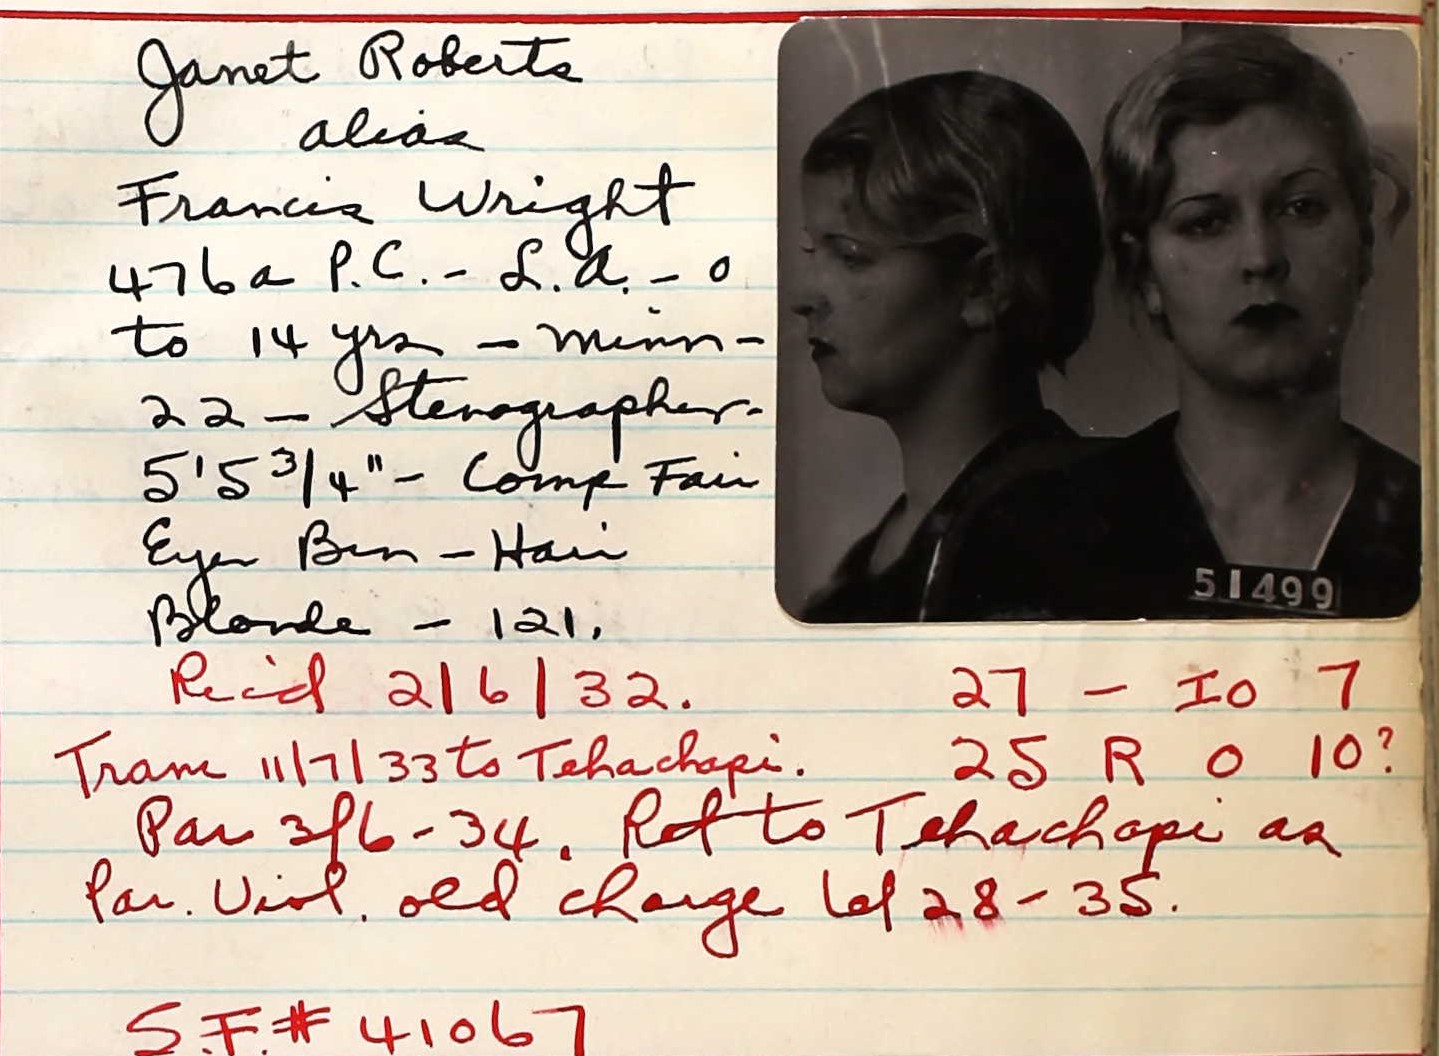 Janet Roberts
alias
Francis Wright
476a P.C. - L.A. - 0
to 14 yrs - Minn -
22 - Stenographer.
5'5 3/4" - Comp Fair
Eyes Brn - Hair
Blonde - 121.
51499
Rec'd 2/6/32.
27 - IO 7
Trans 11/7/33 to Tehachapi.
25 R O 10?
Par 3/6-34. Ret to Tehachapi as
Par. Viol. old charge 28-35.
S.F.# 41067